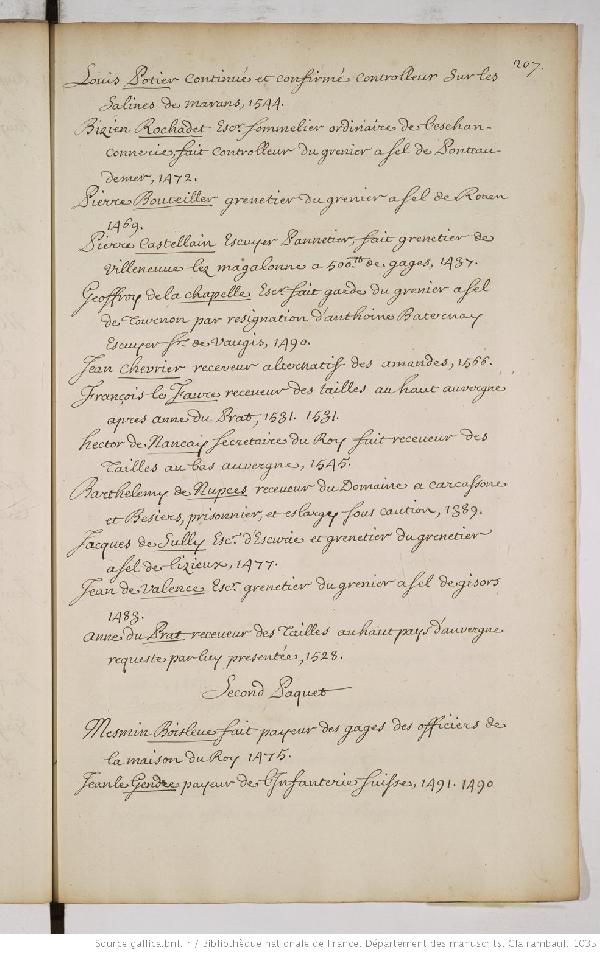 207.
Louis Potier continué et confirmé controlleur sur les
Salines de marans, 1544.
Bizien Rochadet Escr. sommelier ordinaire de l'eschan-
connerie, fait controlleur du grenier a sel de Ponteau-
demer, 1472.
Pierre Bouteiller grenetier du grenier a sel de Rouen
1469.
Pierre Castellain Escuyer Pannetier, fait grenetier de
Villeneuve lez magalonne a 500.tt de gages, 1437.
Geoffroy de la chapelle Escr. fait garde du grenier a sel
de Tournon par resignation d'anthoine
Escuyer Sr. de Vaugis, 1490.
Jean Chevrier receveur alternatif des amandes, 1566.
François le Favre receveur des tailles au haut auvergne
apres anne du Prat, 1531. 1531.
hector de Nancay secretaire du Roy fait receveur des
Tailles au bas auvergne, 1545.
Barthelemy de Nupces receveur du Domaine a carcassone
et Besiers, prisonnier, et eslargy sous caution, 1389.
Jacques de Sully Escr. d'Escurie et grenetier du grenetier
a sel de lizieux, 1477.
Jean de Valence Escr. grenetier du grenier a sel de gisors
1483.
anne du Prat receveur des Tailles au haut pays d'auvergne
requeste par luy presentée, 1528.
Second Paquet
Mesmin Boisleue fait payeur des gages des officiers de
la maison du Roy 1475.
Jean le Gendre payeur de l'Infanterie suisse, 1491. 1490
Source gallica.bnf.fr / Bibliothèque nationale de France. Département des manuscrits. Clairambault 1035